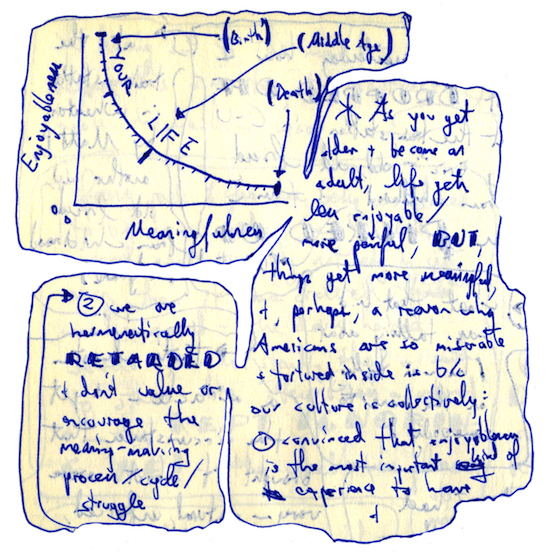 (Birth)
(Middle Age)
(Death)
YOUR LIFE
Enjoyableness
Meaningfulness
* As you get
older + become an
adult, life gets
less enjoyable/
more painful, BUT,
things get more meaningful,
+, perhaps, a reason why
Americans are so miserable
+ tortured inside is b/c
our culture is collectively:
① convinced that enjoyableness
is the most important kind of
experience to have
+
② we are
hermeneutically
RETARDED
+ don't value or
encourage the
meaning-making
process/cycle/
struggle